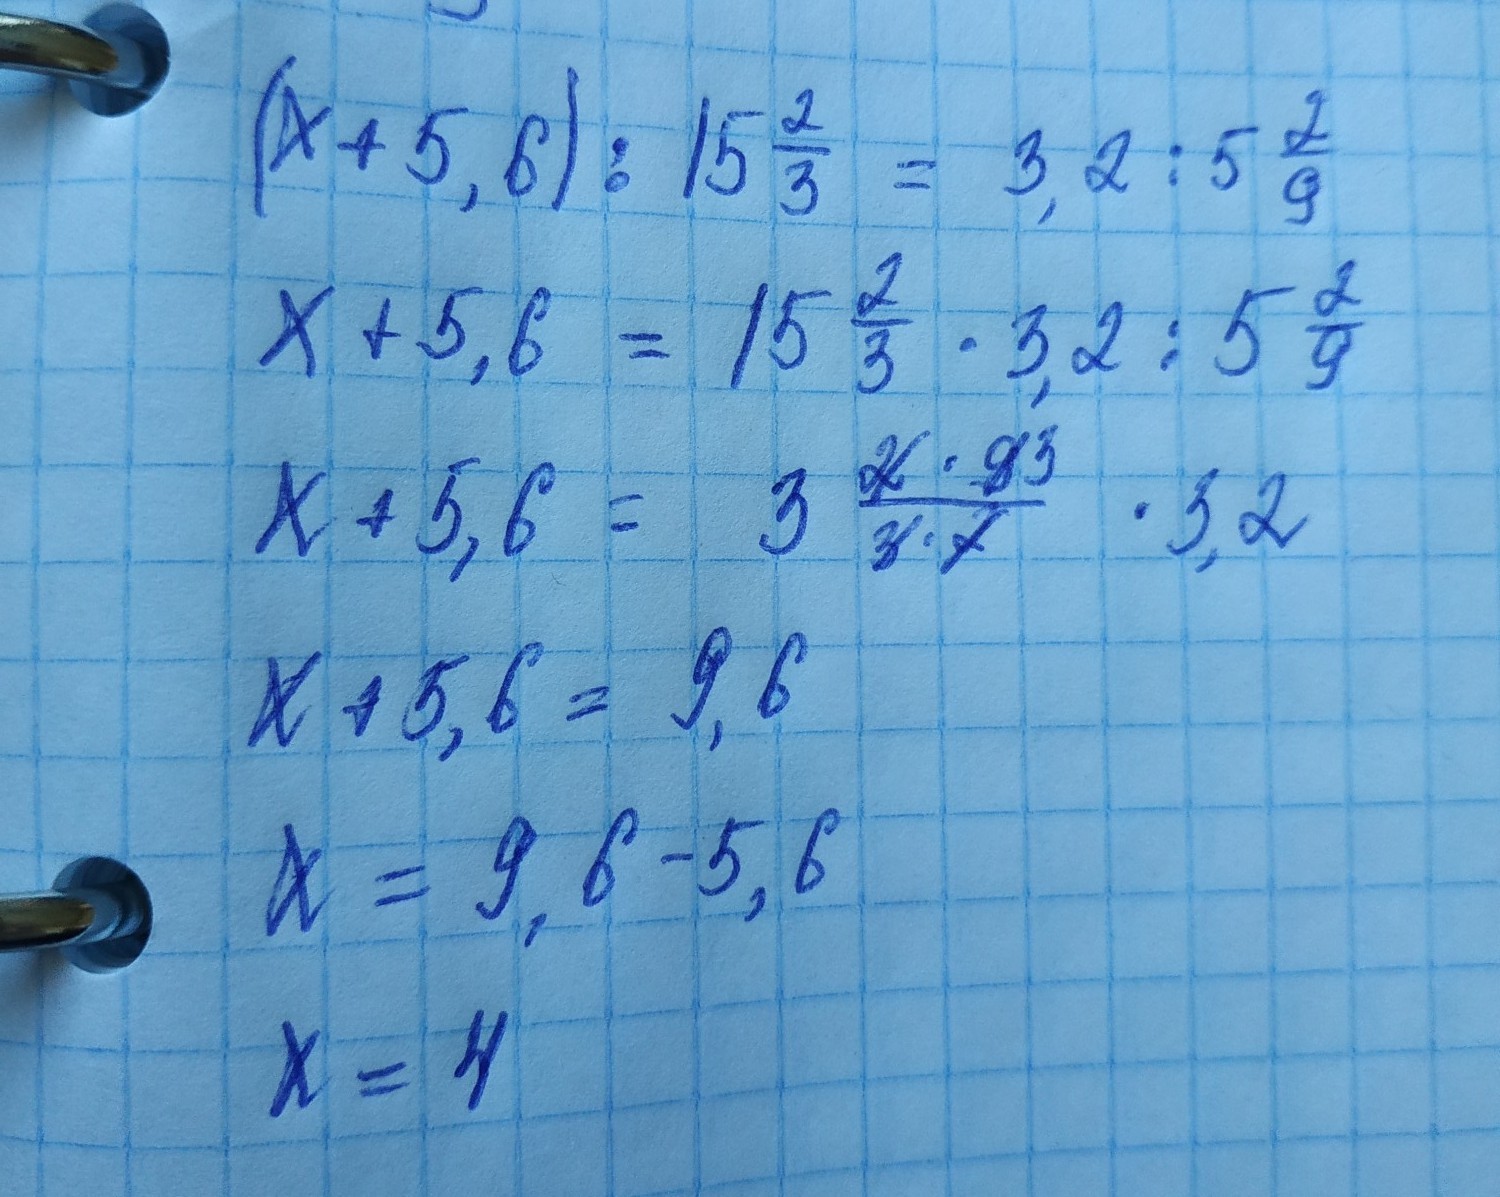 (x + 5,6) : 15 2/3 = 3,2 : 5 2/9
x + 5,6 = 15 2/3 · 3,2 : 5 2/9
x + 5,6 = 3 · 3,2
x + 5,6 = 9,6
x = 9,6 - 5,6
x = 4